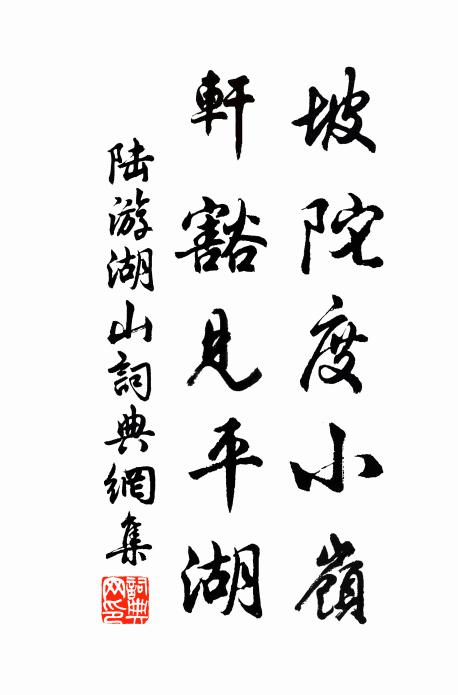 坡陀度小嶺
軒豁見平湖
陆游湖山詞典網集
詞典网印